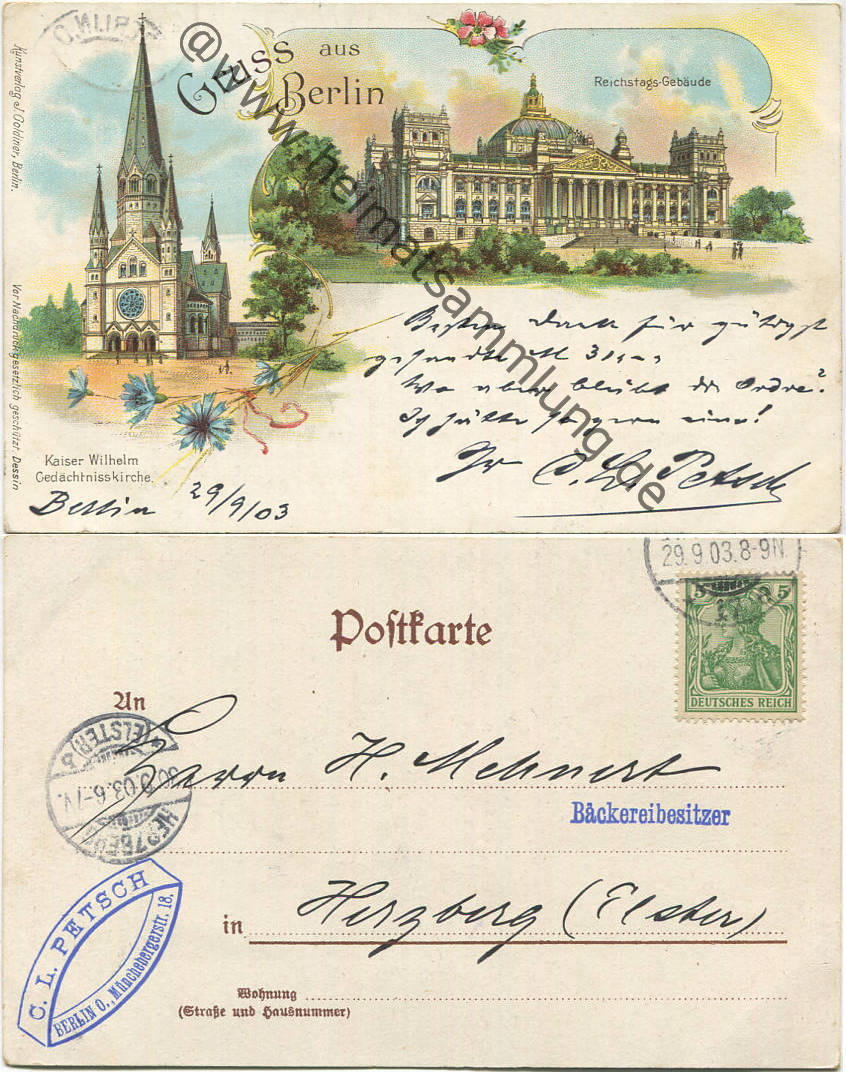 BERLIN C.
Gruss aus
Berlin
Reichstags-Gebäude
Kunstverlag J. Goldiner, Berlin.
Vor Nachdruck gesetzlich geschützt. Dessin
@www.heimatsammlung.de
Kaiser Wilhelm
Gedächtniskirche.
Besten Dank für gütigst
gesandte M
Wo aber bleibt der Ordre?
Ich hätte so gern eine!
Ihr C. L. Petsch
Berlin 29/9/03
29.9.03.8-9N.
Postkarte
5 5
DEUTSCHES REICH
An
Herrn H. Mehnert
Bäckereibesitzer
HERZBERG
30.9.03.6-7V.
(ELSTER)
in Herzberg (Elster)
C. L. PETSCH
BERLIN O., Münchebergerstr. 18.
Wohnung
(Straße und Hausnummer)